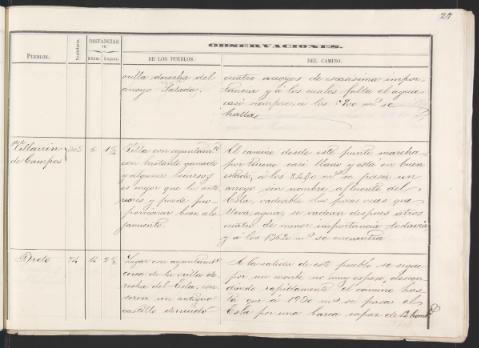 27
OBSERVACIONES.
PUEBLOS.
DISTANCIAS
DE LOS PUEBLOS.
DEL CAMINO.
orilla derecha del
arroyo Salado.
cuatro arroyos de escasisima impor-
tancia y á los cuales falta el agua
casi siempre, á los m.s se
hallas
Villarin
de Campos
Villa con ayuntam.to
con bastante ganado
y algunos
es mejor que la ante
rior y puede pro-
porcionar buen alo-
jamiento.
Al camino desde este punto marcha
por terreno casi llano y esta en buen
estado, á los 8240 m.s se pasa un
arroyo sin nombre, afluente del
Esla, vadeable las pocas veces que
lleva agua, se vadean despues otros
cuatro de menor importancia todavia
y á los 13620 m.s se encuentra
Breto
Lugar con ayuntam.to
cerca de la orilla de-
recha del Esla, con-
serva un antiguo
castillo derruido
A la salida de este pueblo se sigue
por un monte no muy espeso, descen-
diendo rapidamente el camino has-
ta que á 1930 m.s se pasa el
Esla por una barca capaz de 12 homb.s